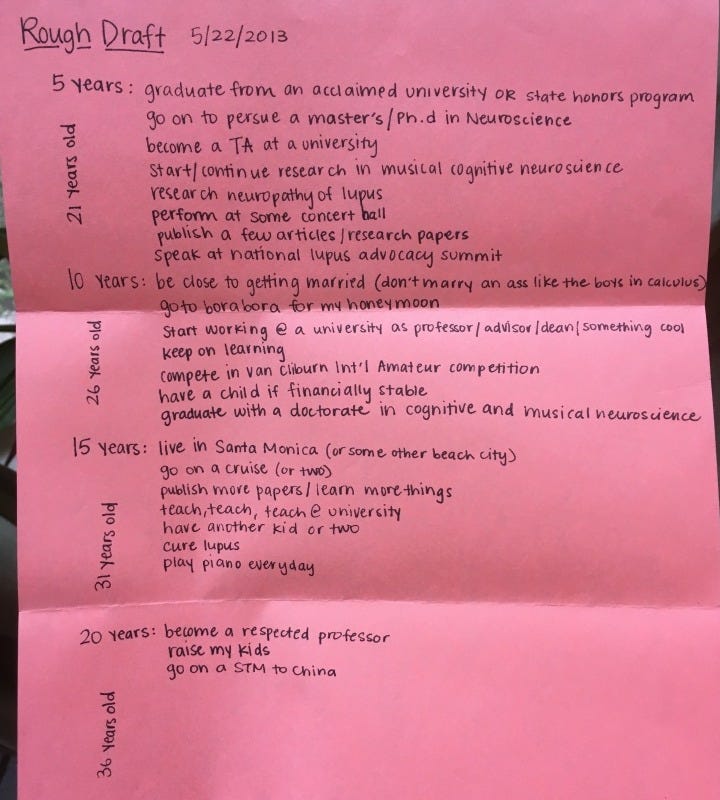 Rough Draft 5/22/2013
5 years: graduate from an acclaimed university OR state honors program
go on to persue a master's/Ph.d in Neuroscience
become a TA at a university
Start/continue research in musical cognitive neuroscience
21 years old
research neuropathy of lupus
perform at some concert hall
publish a few articles/research papers
speak at national lupus advocacy summit
10 years: be close to getting married (don't marry an ass like the boys in calculus)
go to bora bora for my honeymoon
Start working @ a university as professor/advisor/dean/something cool
keep on learning
26 years old
compete in van cliburn Int'l Amateur competition
have a child if financially stable
graduate with a doctorate in cognitive and musical neuroscience
15 years: live in Santa Monica (or some other beach city)
go on a cruise (or two)
publish more papers/learn more things
teach, teach, teach @ university
31 years old
have another kid or two
cure lupus
play piano everyday
20 years: become a respected professor
raise my kids
go on a STM to China
36 years old